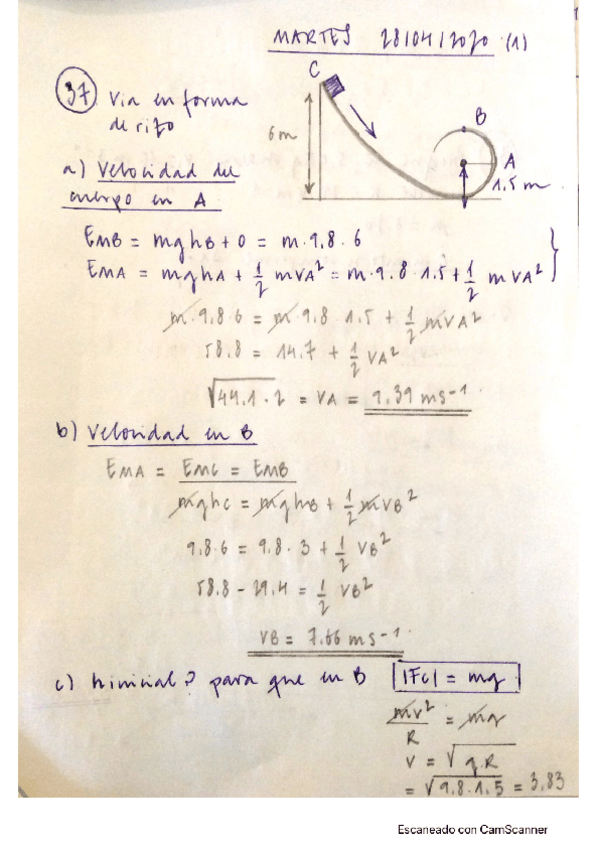 MARTES 28/04/2020 (1)
37 Via en forma
de rizo
C
6m
B
A
1.5 m
a) Velocidad del
cuerpo en A
EMB = mghB + 0 = m·9.8·6
EMA = mghA + 1/2 mVA² = m·9.8·1.5 + 1/2 mVA²
m·9.8·6 = m·9.8 1.5 + 1/2 mVA²
58.8 = 14.7 + 1/2 VA²
√44.1·2 = VA = 9.39 ms-1
b) Velocidad en B
EMA = EMC = EMB
mghC = mghB + 1/2 mVB²
9.8·6 = 9.8·3 + 1/2 VB²
58.8 - 29.4 = 1/2 VB²
VB = 7.66 ms-1
c) hinicial? para que en B |Fc| = mg
mv²/R = mg
V = √g.R
= √9.8·1.5 = 3,83
Escaneado con CamScanner